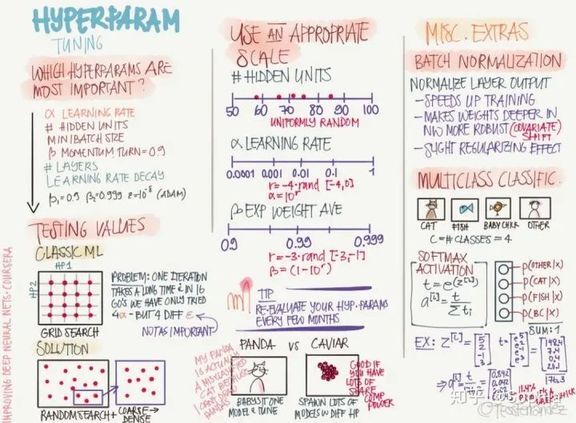 HYPERPARAM
TUNING
WHICH HYPERPARAMS ARE
MOST IMPORTANT?
α LEARNING RATE
# HIDDEN UNITS
MINIBATCH SIZE
β MOMENTUM TURN=0.9
# LAYERS
LEARNING RATE DECAY
β₁=0.9 β₂=0.999 ε=10⁻⁸ (ADAM)
TESTING VALUES
CLASSIC ML
HP1
HP2
GRID SEARCH
PROBLEM: ONE ITERATION
TAKES A LONG TIME & IN 16
GO'S WE HAVE ONLY TRIED
4α - BUT 4 DIFF ε
NOT AS IMPORTANT
SOLUTION
RANDOM SEARCH + COARSE → DENSE
IMPROVING DEEP NEURAL NETS - COURSERA
USE AN APPROPRIATE
SCALE
# HIDDEN UNITS
50 60 70 80 90 100
UNIFORMLY RANDOM
α LEARNING RATE
0.0001 0.001 0.01 0.1 1
r=-4·rand [-4,0]
α=10ʳ
β EXP WEIGHT AVE
0.9 0.99 0.999
r=-3·rand [-3,-1]
β=(1-10ʳ)
TIP
RE-EVALUATE YOUR HYP. PARAMS
EVERY FEW MONTHS
PANDA VS CAVIAR
MY PANDA
IS ACTUALLY
BABYSIT ONE
MODEL & TUNE
GOOD IF
YOU HAVE
LOTS OF
COMP
POWER
SPAWN LOTS OF
MODELS W DIFF HP
MISC. EXTRAS
BATCH NORMALIZATION
NORMALIZE LAYER OUTPUT
- SPEEDS UP TRAINING
- MAKES WEIGHTS DEEPER IN
NW MORE ROBUST (COVARIATE SHIFT)
- SLIGHT REGULARIZING EFFECT
MULTICLASS CLASSIFIC.
CAT FISH BABY CHICK OTHER
C=# CLASSES = 4
SOFTMAX
ACTIVATION
t=e^(z^[L])
a^[L]=t/Σtᵢ
P(OTHER|X)
P(CAT|X)
P(FISH|X)
P(BC|X)
SUM:1
EX: z^[L]=[5 2 -1 3] t=[148.4 7.4 0.4 20.1]
176.3